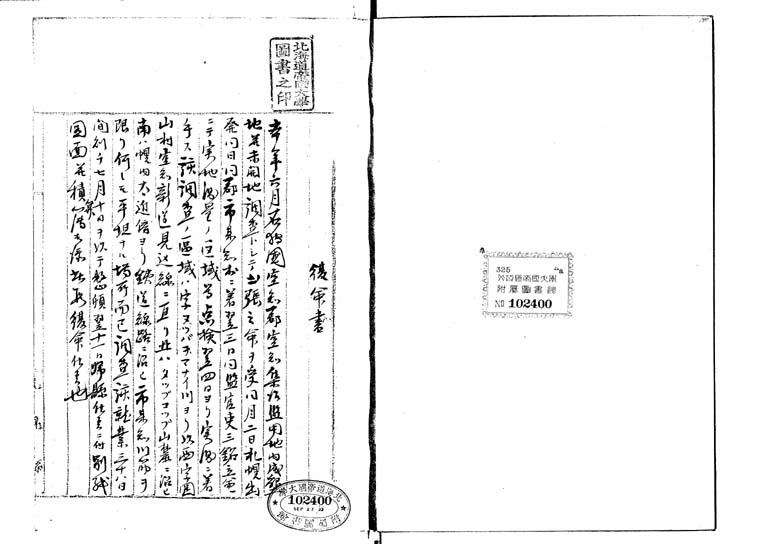 北海道帝国大学
圖書之印
復命書
本年六月石狩國空知郡空知集治監用地内成墾
地并未開地調査トシテ出張之命ヲ受同月二日札幌出
発同日同郡市来知村ニ着翌三日同監官吏三名立会
ニテ実地測量ノ区域等点検翌四日ヨリ実測ニ着
手ス該調査ノ區域ハ字 ナイ川ヨリ以西字
山村空知新道見込線ニ直リ北ハタップコップ山麓ニ沿ヒ
南ハ幌内太近傍ヨリ鉄道線路ニ沿ヒ市来知川筋ヲ
限リ何レモ平坦ナル場所而已調査該就業三十日
間ニシテ七月十日ヲ以テ整頓翌十一日帰縣仕候ニ付別紙
図面并積算 相添此段復命仕候也
325
附属圖書館
№ 102400
北海道帝國大學
102400
SEP 27
附属圖書館